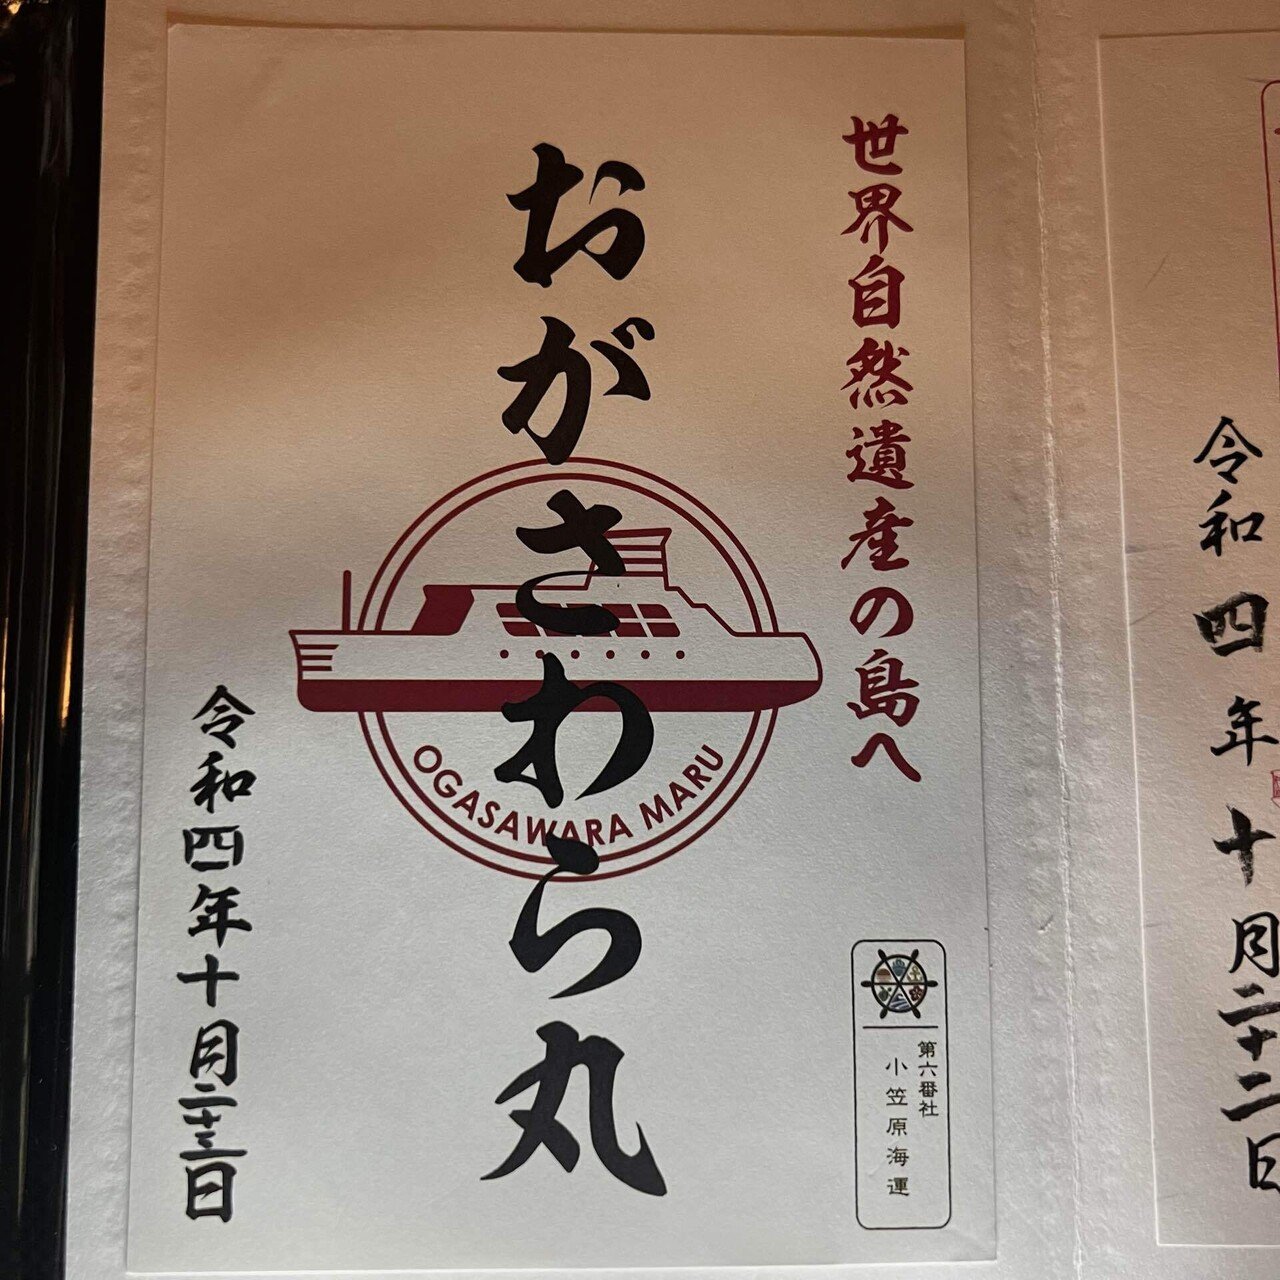 令和四年十月二十二日
世界自然遺産の島へ
おがさわら丸
OGASAWARA MARU
令和四年十月二十三日
第六番社
小笠原海運